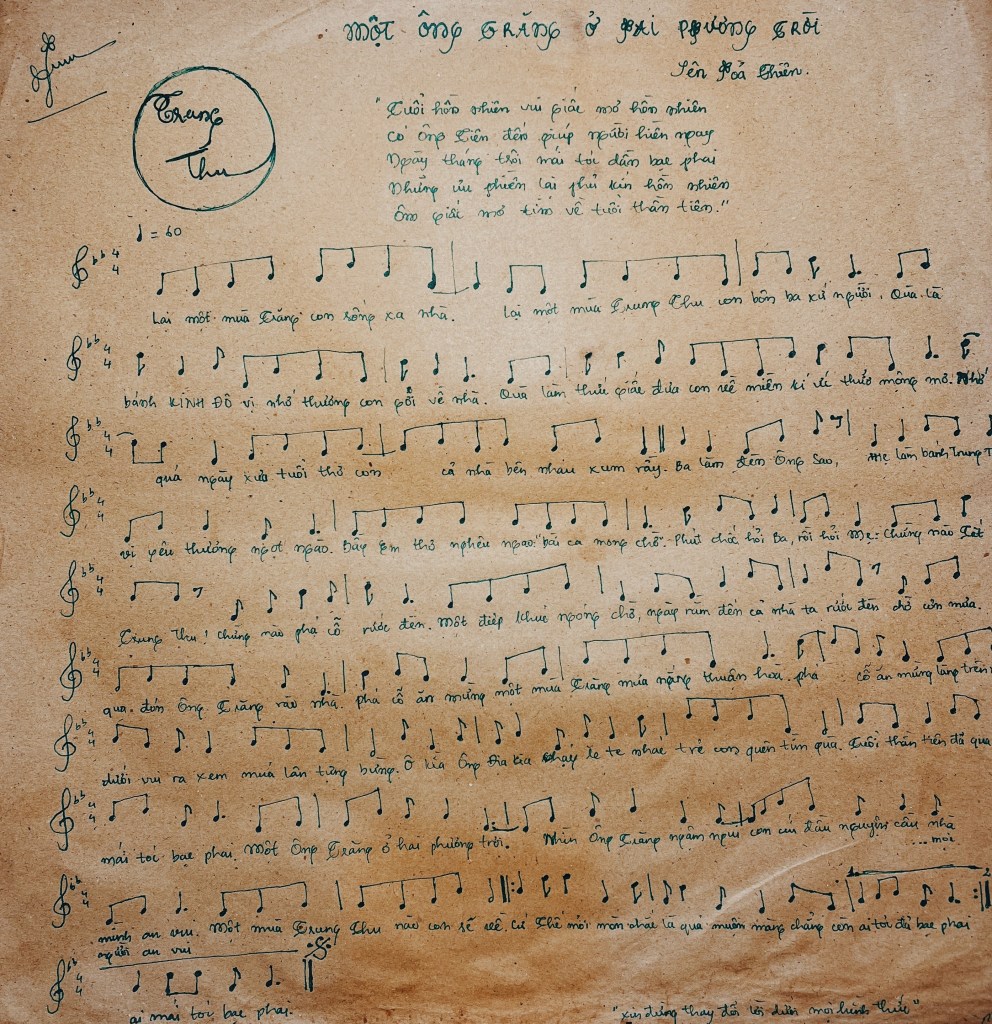 MỘT ÔNG TRĂNG Ở HAI PHƯƠNG TRỜI
Trung
Thu
"Tuổi hồn nhiên vui giấc mơ hồn nhiên
Có Ông Tiên đến giúp người hiền ngay
Ngày tháng trôi mái tóc dần bạc phai
Những ưu phiền lại phủ kín hồn nhiên
Ôm giấc mơ tìm về tuổi thần tiên."
♩ = 60
Lại một mùa Trăng con sống xa nhà. Lại một mùa Trung Thu con bôn ba xứ người. Quà là
bánh KINH ĐÔ vị nhớ thương con gởi về nhà. Quà làm thức giấc đưa con về miền kí ức thuở mộng mơ. Nhớ
quá ngày xưa tuổi thơ con cả nhà bên nhau xum vầy. Ba làm đèn Ông Sao, Mẹ làm bánh Trung T
vị yêu thương ngọt ngào. Bầy em thơ nghêu ngao "bài ca mong chờ". Phút chốc hỏi Ba, rồi hỏi Mẹ: Chừng nào Tết
Trung Thu! Chừng nào phá cỗ rước đèn. Một điệp khúc ngóng chờ, ngày rằm đến cả nhà ta rước đèn chờ cơn mưa.
qua. đón Ông Trăng vào nhà. phá cỗ ăn mừng một mùa Trăng mưa nắng thuận hòa. phá cỗ ăn mừng làng trên
dưới vui ra xem múa lân tưng bừng. Ô kìa Ông Địa kìa le te nhác trẻ con quên tấn quà. Tuổi thần tiên đã qua
mái tóc bạc phai. Một Ông Trăng ở hai phương trời. Nhìn Ông Trăng ngậm ngùi con cúi đầu nguyện cầu nhà
...mọi
mình an vui. Một mùa Trung Thu nào con sẽ về. Cứ thế mỏi mòn nhác là quà muộn màng chẳng còn ai tóc đã bạc phai
người an vui
ai mái tóc bạc phai.
"xin đừng thay đổi lời dưới mọi hình thức"